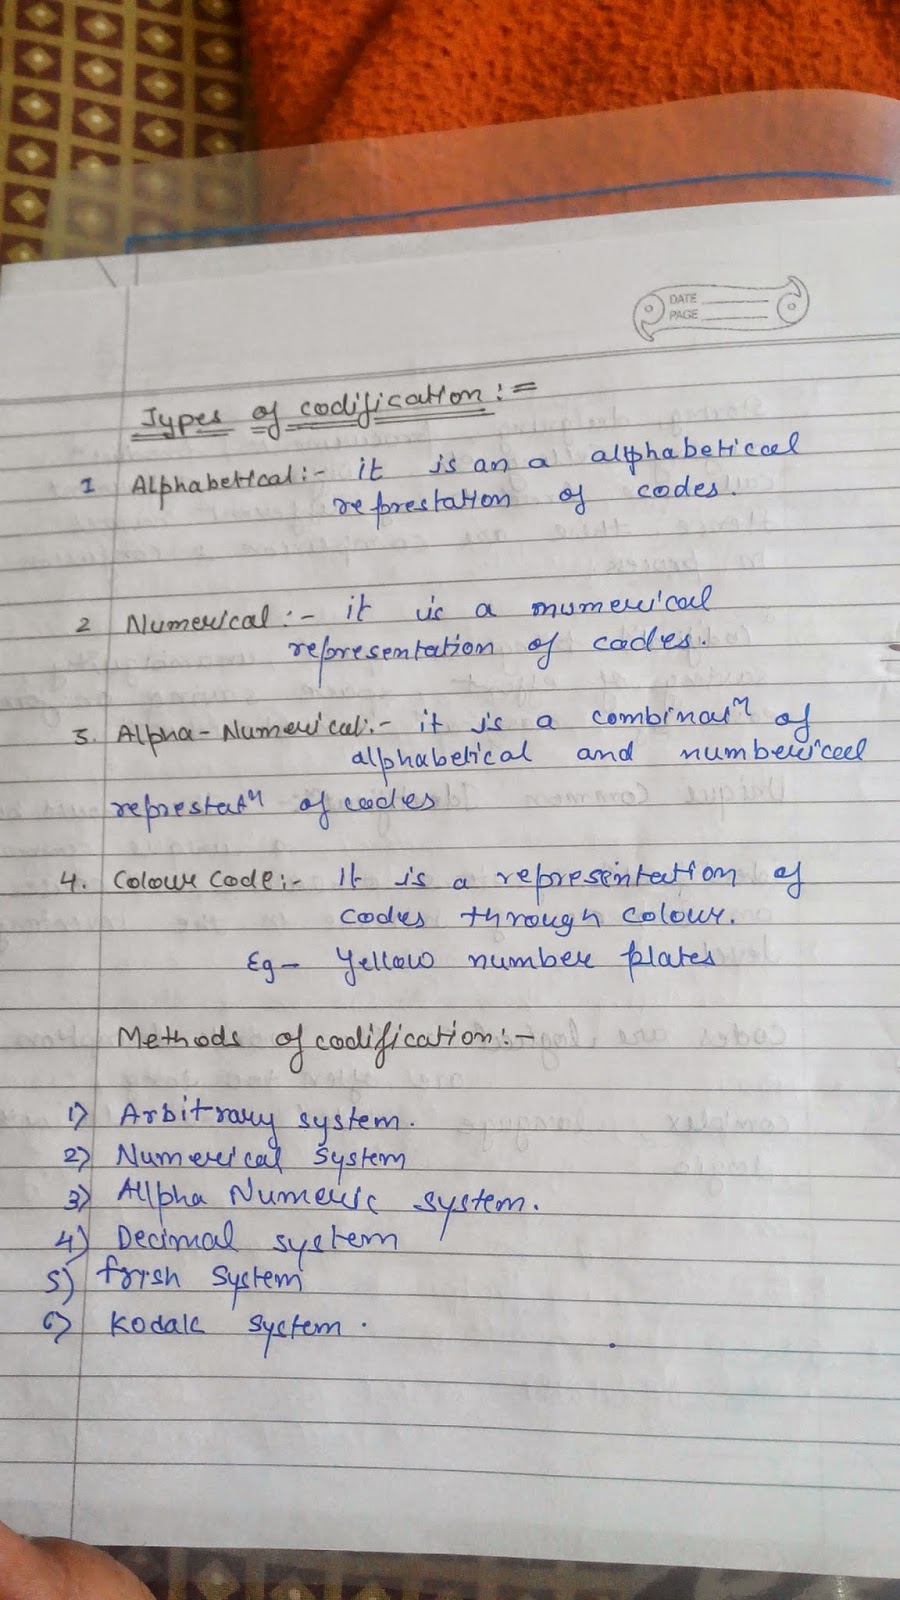 DATE
PAGE
Types of codification :=
1 Alphabetical :- it is an a alphabetical
represtation of codes.
2 Numerical :- it is a numerical
representation of codes.
3. Alpha-Numerical :- it is a combinatⁿ of
alphabetical and numberical
represtatⁿ of codes
4. Colour Code :- It is a representation of
codes through colour.
Eg - Yellow number plates
Methods of codification :-
1) Arbitrary system.
2) Numerical System
3) Allpha Numeric system.
4) Decimal system
5) System
6) Kodak system.